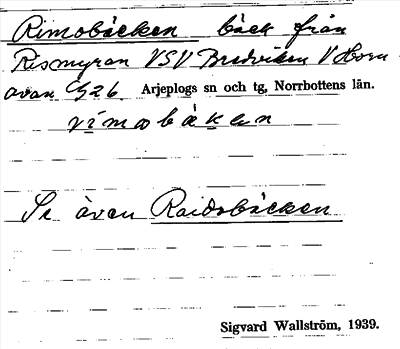 Rimobäcken bäck från
Rismyran VSV Bredviken V Horn-
avan G26. Arjeplogs sn och tg, Norrbottens län.
rimobäken
Se även Raidobäcken
Sigvard Wallström, 1939.